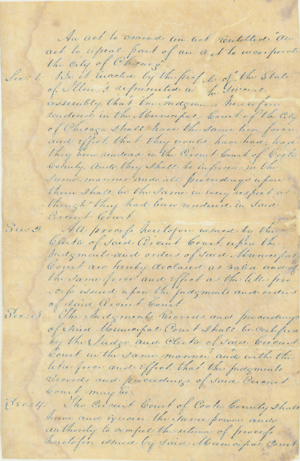 An act to amend an act entitled "An
act to repeal part of an Act to incorporate
the City of Chicago"
Sec. 1. Be it enacted by the people of the State
of Illinois represented in the General
assembly that the Judgments heretofore
rendered in the Municipal Court of the City
of Chicago shall have the same lien force
and effect that they would have had, had
they been rendered in the Circuit Court of Cook
County And they shall be in force in the
same manner and all proceedings upon
them shall be the same in every respect as
though they had been rendered in said
Circuit Court
Sec. 2. All process heretofore issued by the
Clerk of said Circuit Court upon the
Judgments and orders of said Municipal
Court are hereby declared as valid and of
the same force and effect as the like
issued upon the Judgments and orders
of said Circuit Court
Sec. 3. The Judgments Records and proceedings
of said Municipal Court shall be certified
by the Judge and Clerk of said Circuit
Court in the same manner and with the
like force and effect that the Judgments
Records and proceedings of said Circuit
Court may be
Sec. 4. The Circuit Court of Cook County shall
have and exercise the same power and
authority to compel the return of process
heretofore issued by said Municipal Court